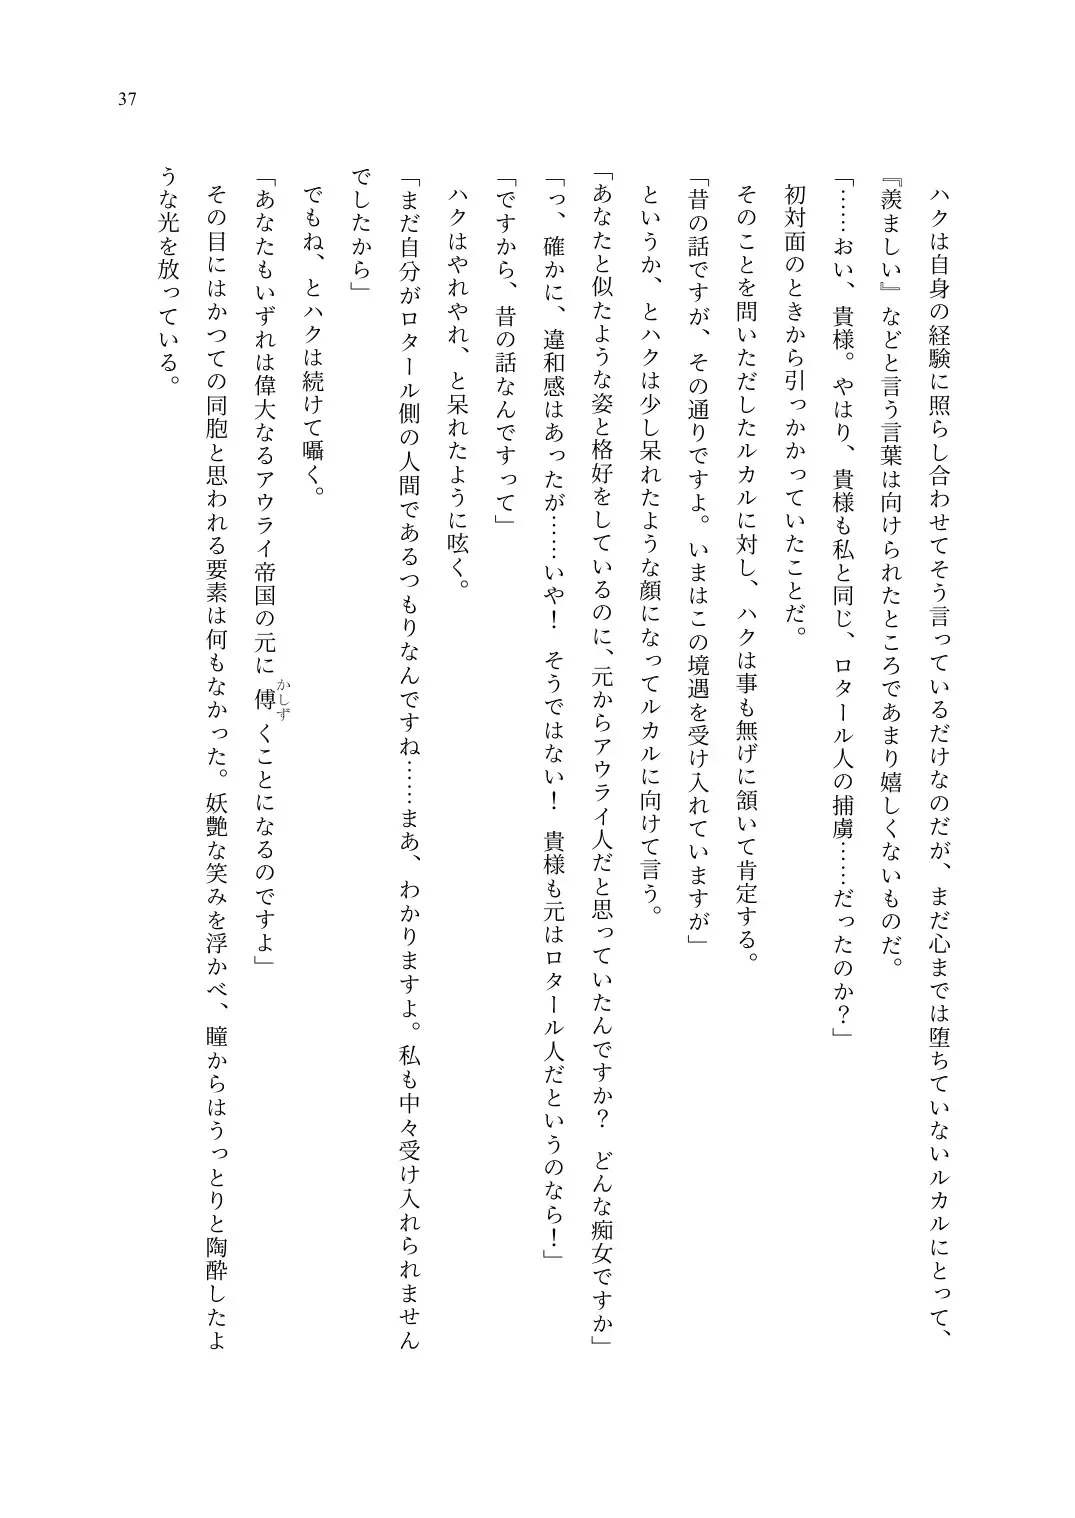 37
ハクは自身の経験に照らし合わせてそう言っているだけなのだが、まだ心までは堕ちていないルカルにとって、
『羨ましい』などと言う言葉は向けられたところであまり嬉しくないものだ。
「……おい、貴様。やはり、貴様も私と同じ、ロタール人の捕虜……だったのか？」
初対面のときから引っかかっていたことだ。
そのことを問いただしたルカルに対し、ハクは事も無げに頷いて肯定する。
「昔の話ですが、その通りですよ。いまはこの境遇を受け入れていますが」
というか、とハクは少し呆れたような顔になってルカルに向けて言う。
「あなたと似たような姿と格好をしているのに、元からアウライ人だと思っていたんですか？　どんな痴女ですか」
「っ、確かに、違和感はあったが……いや！　そうではない！　貴様も元はロタール人だというのなら！」
「ですから、昔の話なんですって」
ハクはやれやれ、と呆れたように呟く。
「まだ自分がロタール側の人間であるつもりなんですね……まあ、わかりますよ。私も中々受け入れられません
でしたから」
でもね、とハクは続けて囁く。
「あなたもいずれは偉大なるアウライ帝国の元に傅かしずくことになるのですよ」
その目にはかつての同胞と思われる要素は何もなかった。妖艶な笑みを浮かべ、瞳からはうっとりと陶酔したよ
うな光を放っている。